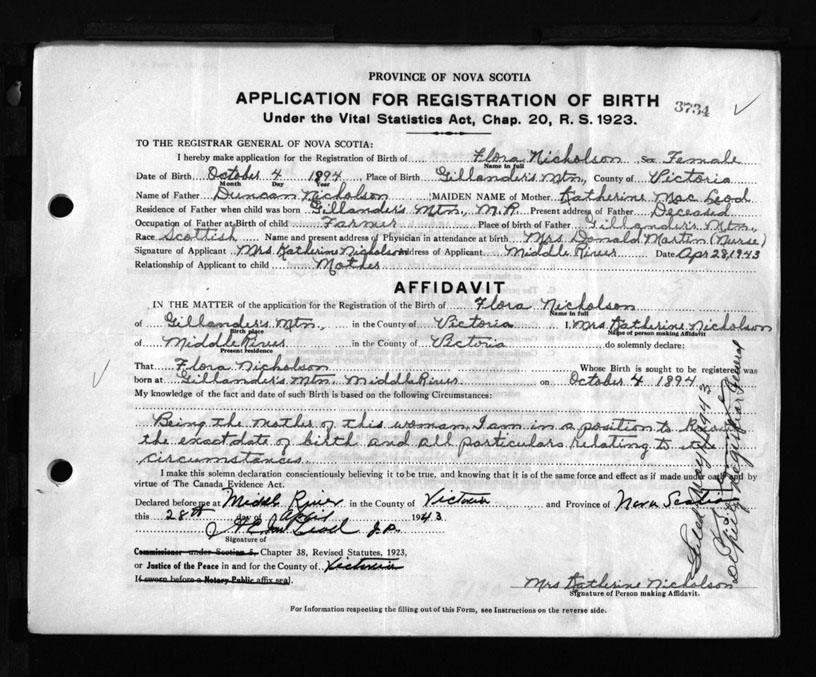 PROVINCE OF NOVA SCOTIA
APPLICATION FOR REGISTRATION OF BIRTH 3734
Under the Vital Statistics Act, Chap. 20, R. S. 1923.
TO THE REGISTRAR GENERAL OF NOVA SCOTIA:
I hereby make application for the Registration of Birth of Flora Nicholson Sex Female
Name in full
Date of Birth October 4 1894 Place of Birth Gillander's Mtn., County of Victoria
Month Day Year
Name of Father Duncan Nicholson MAIDEN NAME of Mother Katherine Mac Leod
Residence of Father when child was born Gillander's Mtn., M.R. Present address of Father Deceased
Occupation of Father at Birth of child Farmer Place of birth of Father Gillander's Mtn.
Race Scottish Name and present address of Physician in attendance at birth Mrs Donald Martin (Nurse)
Signature of Applicant Mrs Katherine Nicholson Address of Applicant Middle River Date Apr 28, 1943
Relationship of Applicant to child Mother
AFFIDAVIT
IN THE MATTER of the application for the Registration of the Birth of Flora Nicholson
Name in full
of Gillander's Mtn., in the County of Victoria I, Mrs Katherine Nicholson
Birth place Name of person making Affidavit
of Middle River in the County of Victoria do solemnly declare:
Present residence
That Flora Nicholson Whose Birth is sought to be registered was
born at Gillander's Mtn. Middle River on October 4 1894
My knowledge of the fact and date of such Birth is based on the following Circumstances:
Being the mother of this woman, I am in a position to know
the exact date of birth and all particulars relating to its
circumstances
I make this solemn declaration conscientiously believing it to be true, and knowing that it is of the same force and effect as if made under oath and by
virtue of The Canada Evidence Act.
Declared before me at Middle River in the County of Victoria and Province of Nova Scotia
this 28th day of April 1943
J.P.
Signature of
Commissioner under Section 5, Chapter 38, Revised Statutes, 1923,
or Justice of the Peace in and for the County of Victoria
If sworn before a Notary Public affix seal.
Mrs Katherine Nicholson
Signature of Person making Affidavit.
For Information respecting the filling out of this Form, see Instructions on the reverse side.
Deputy Registrar General